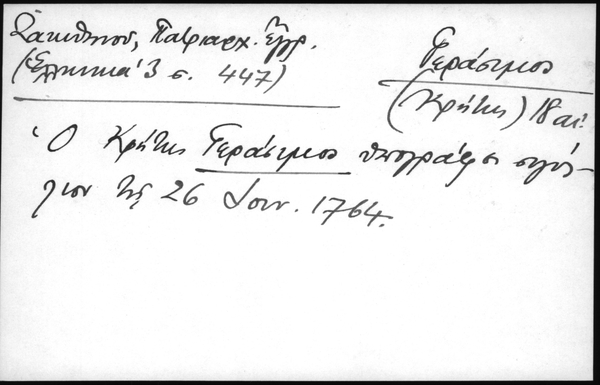 Ζακυθηνοῦ, Πατριαρχ. Ἔγγρ.
(Ἑλληνικά 3 σ. 447)
Γεράσιμος
(Κρήτης) 18 αἰ.
Ὁ Κρήτης Γεράσιμος ὑπογράφει σιγίλ-
λιον τῆς 26 Ἰουν. 1764.